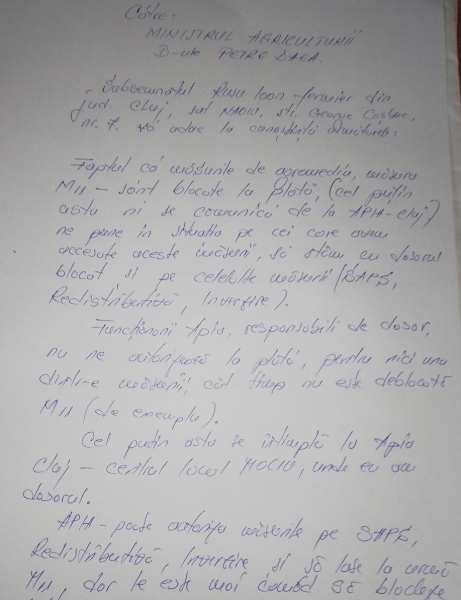 Către:
MINISTRUL AGRICULTURII
D-ule PETRE DAEA.
Subsemnatul Rusu Ioan - fermier din
jud. Cluj, sat str. George Coșbuc,
nr. 7. Vă aduc la cunoștință următoarele:
Faptul că măsurile de agromediu, măsura
M11 - sînt blocate la plată, (cel puțin
asta ni se comunică de la APIA-Cluj)
ne pune în situația pe cei care avem
accesate aceste măsuri, să stăm cu dosarul
blocat si pe celelalte măsuri (SAPS,
Redistributivă, Inverzire).
Funcționarii Apia, responsabili de dosar,
nu ne autorizează la plată, pentru nici una
dintre măsuri, cît timp nu este deblocată
M11 (de exemplu).
Cel puțin asta se întîmplă la Apia
Cluj - centrul local MOCIU, unde eu am
dosarul.
APIA - poate autoriza măsurile pe SAPS,
Redistributivă, Inverzire, si să lase la urmă
M11, dar le este mai comod să blocheze